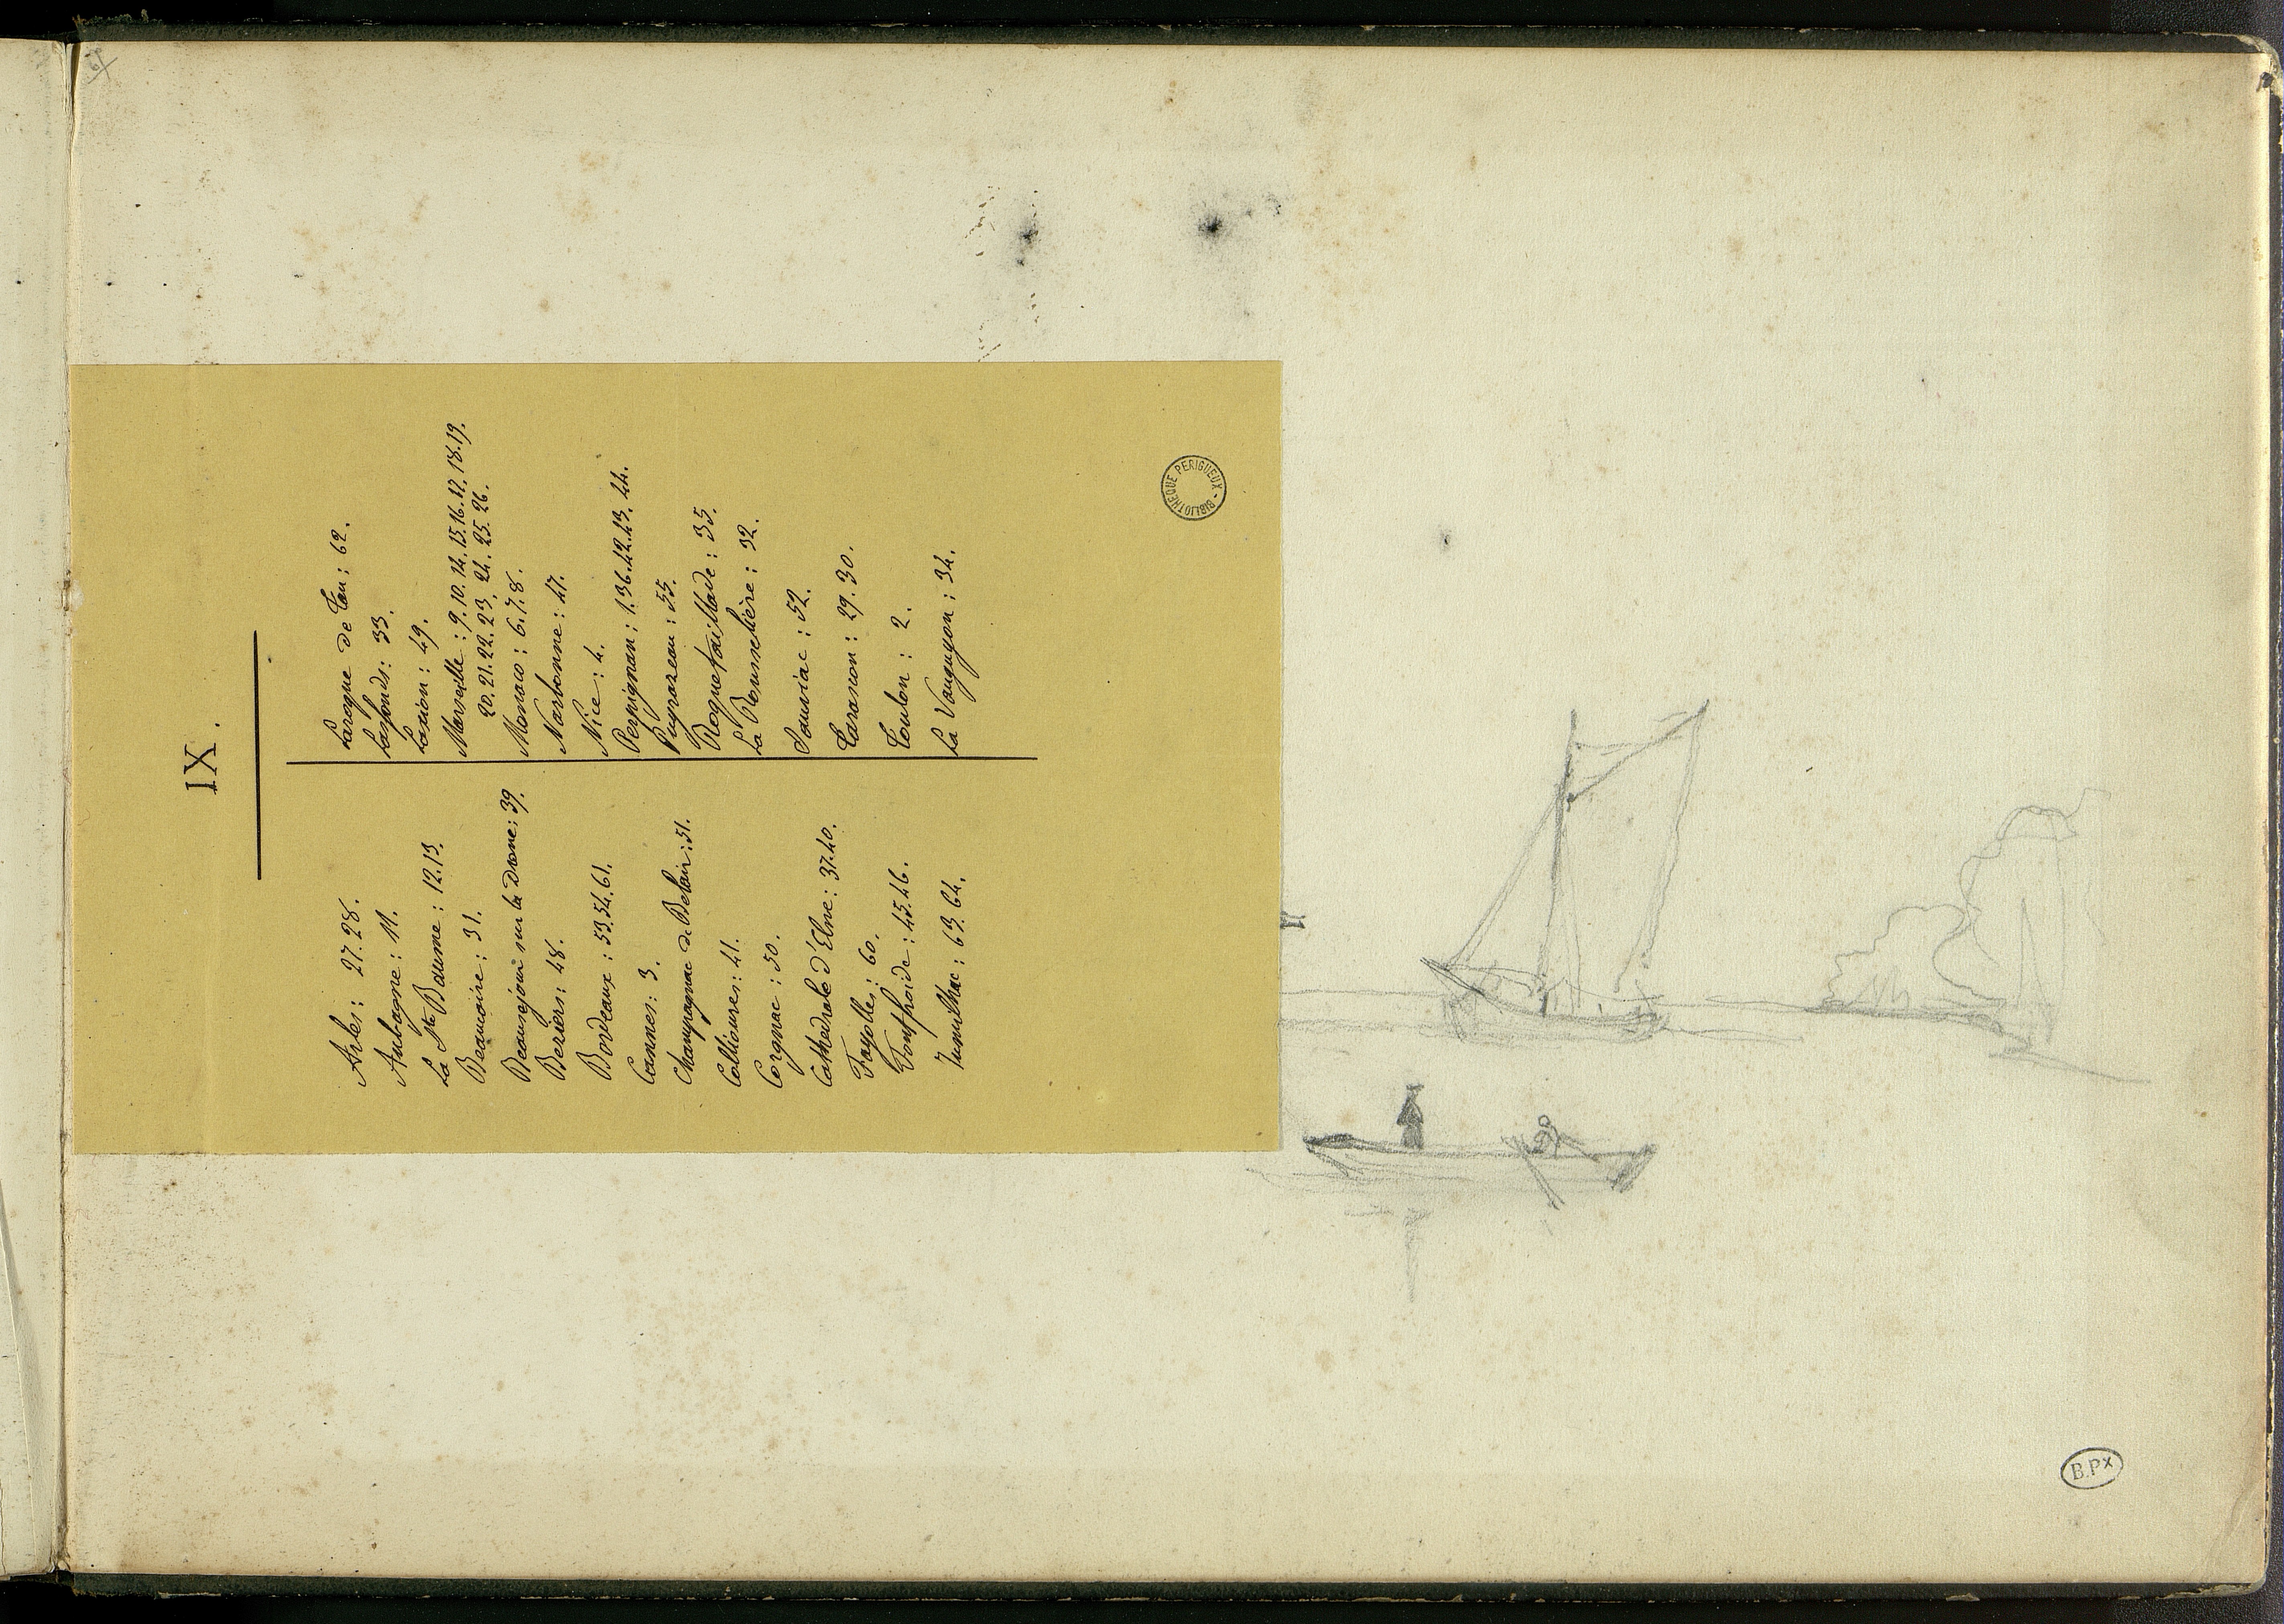 IX.
Arles : 27.28.
Aubagne : 11.
La Ste Baume : 12.13.
Beauvoire : 31.
Beauséjour sur la Drone : 39.
Beziers : 48.
Bordeaux : 53.54.61.
Cannes : 3.
Champagnac de Belair : 51.
Collioures : 41.
Corgnac : 50.
Cathédrale d'Elne : 37.40.
Fayolles : 60.
Fontfroide : 45.46.
Jumilhac : 63.64.
Laroque de Tau : 62.
Lasfonds : 33.
Laxion : 49.
Marseille : 9.10.14.15.16.17.18.19.
20.21.22.23.24.25.26.
Monaco : 6.7.8.
Narbonne : 47.
Nice : 4.
Perpignan : 1.36.42.43.44.
Puyrazeau : 55.
Roquetaillade : 35.
La Rousselière : 32.
Sauviac : 52.
Tarascon : 29.30.
Toulon : 2.
La Vauguyon : 34.
BIBLIOTHEQUE PERIGUEUX
B.Px